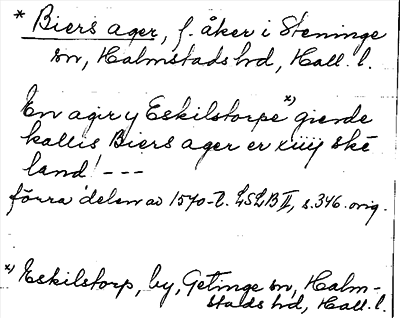 * Biers ager, f. åker i Steninge
sn, Halmstads hd, Hall. l.
En ager y Eskilstorpe x) giende
kallis Biers ager er xiiij ske
land! ---
förra delen av 1570-t. LSLB II, s. 346. orig.
x) Eskilstorp, by, Getinge sn, Halm-
stads hd, Hall. l.